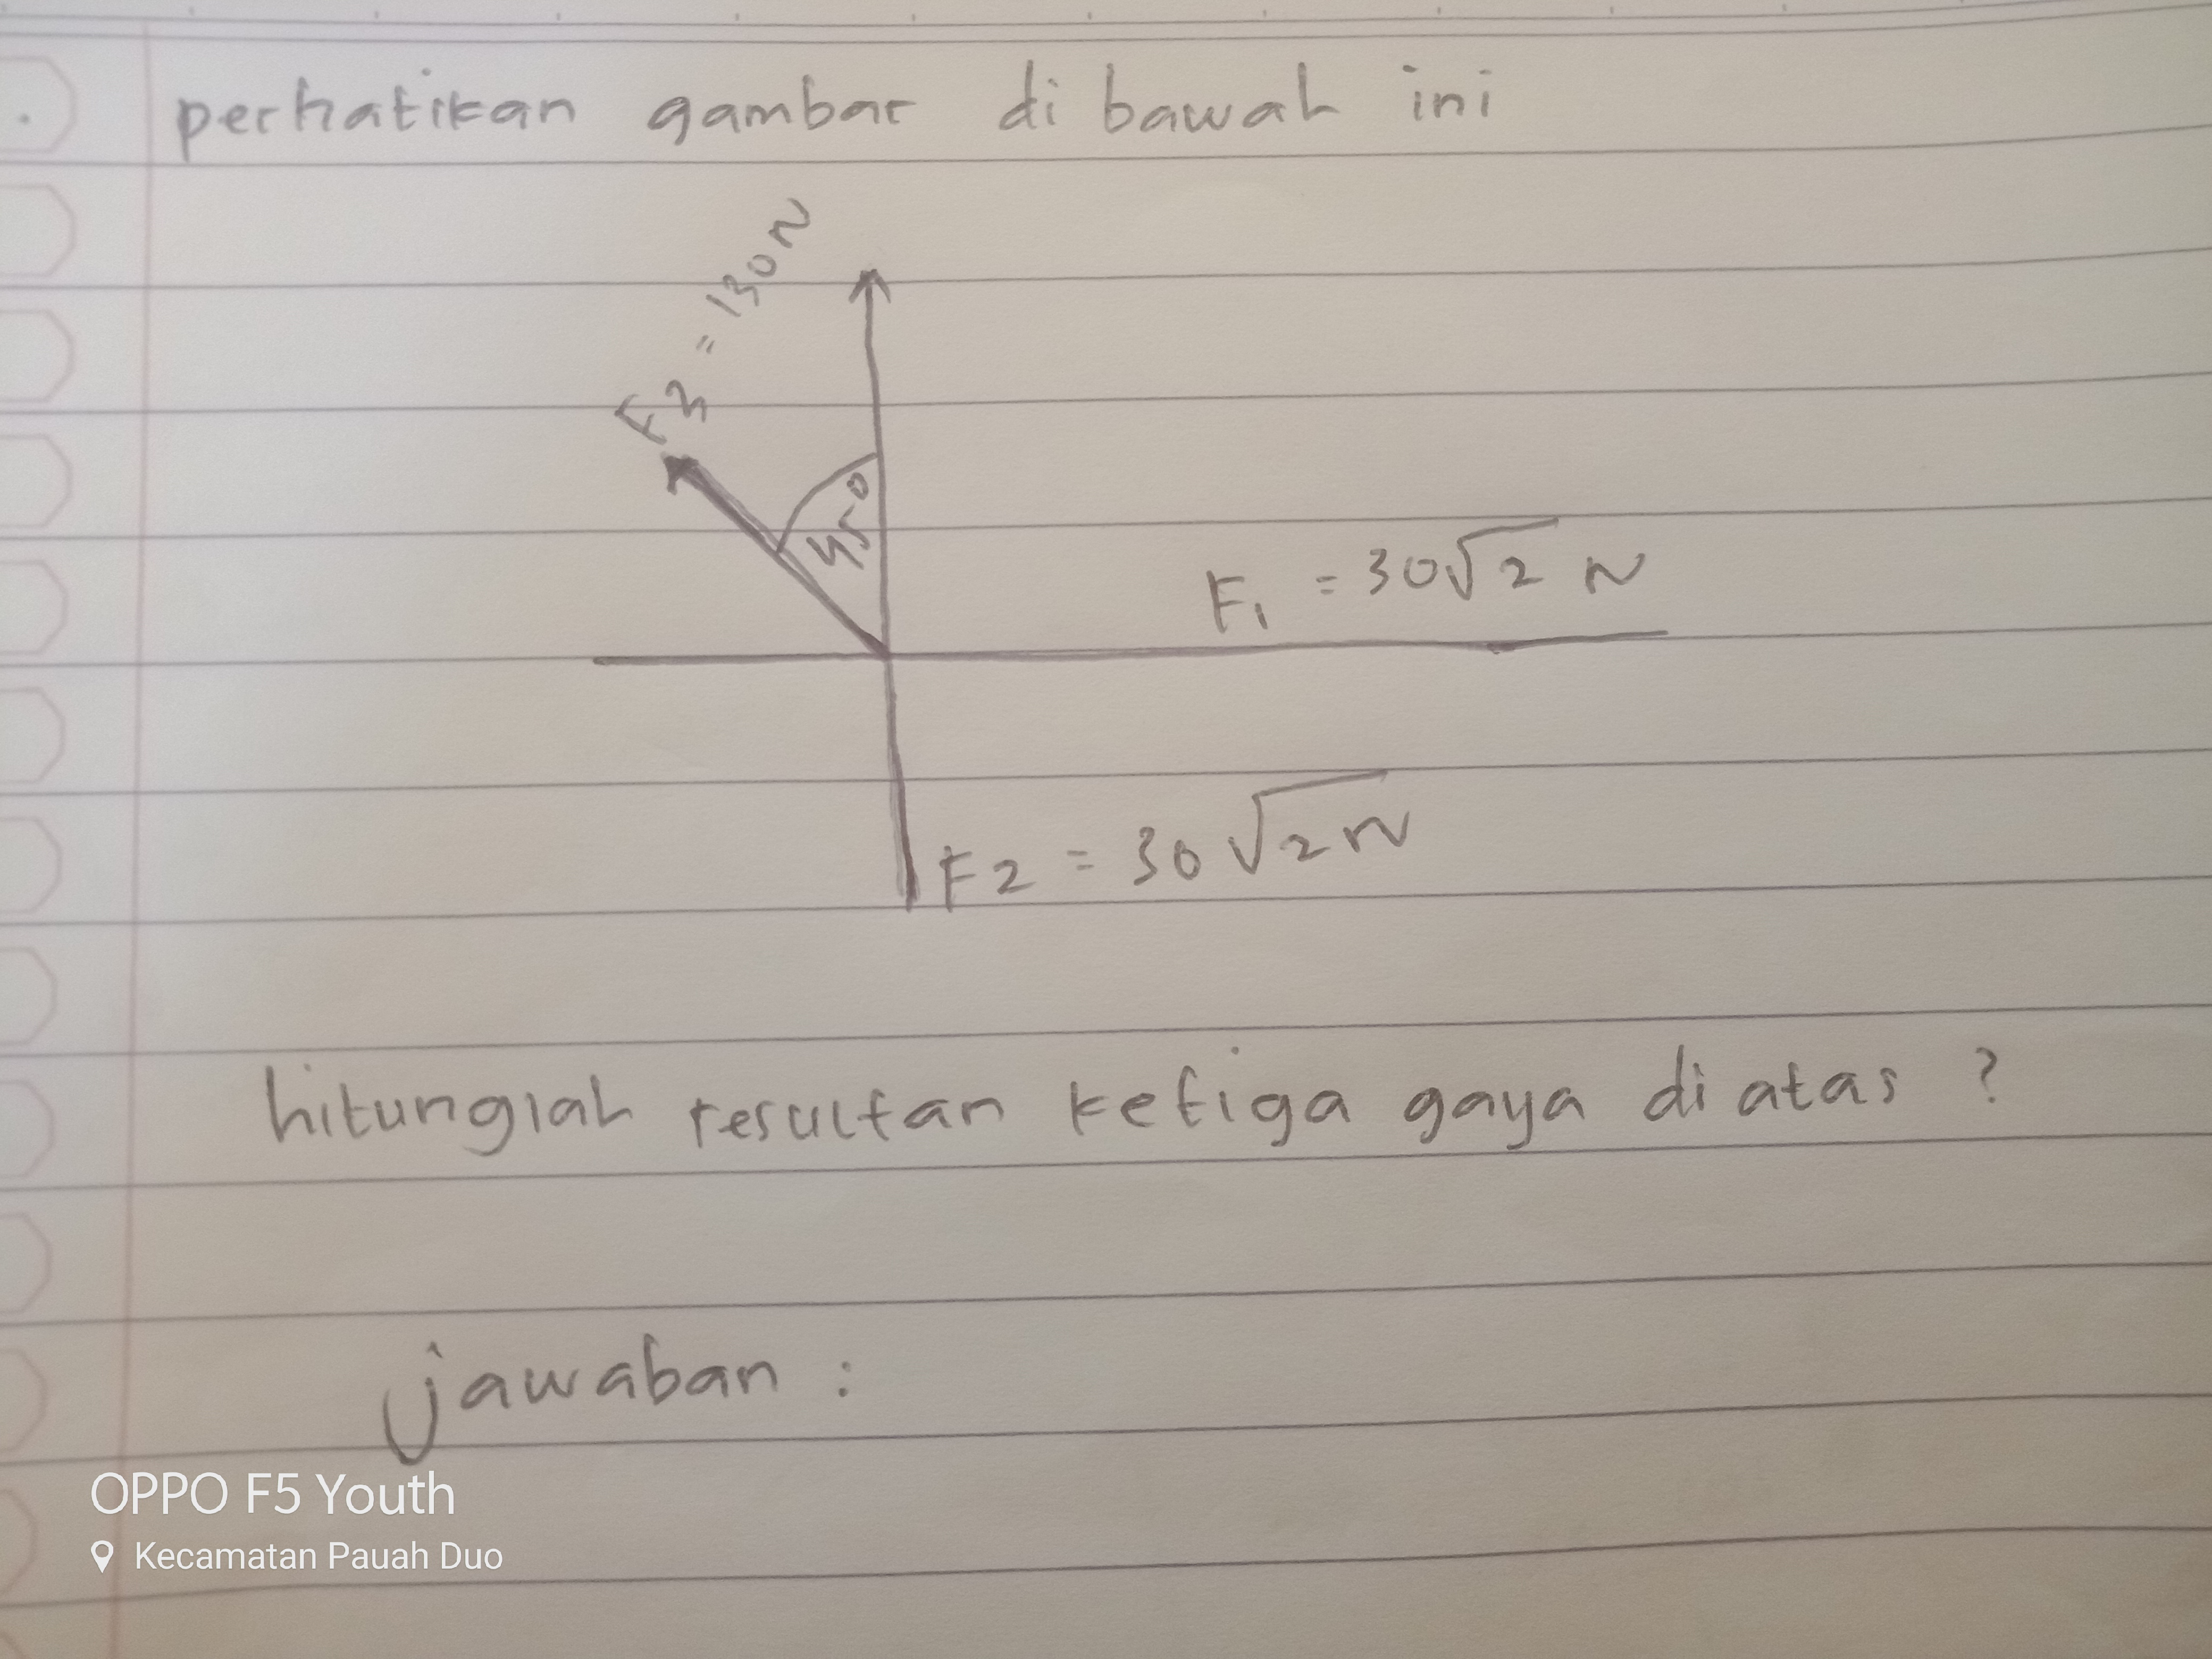 perhatikan gambar di bawah ini
F3 = 130 N
45°
F1 = 30√2 N
F2 = 30√2 N
hitunglah resultan ketiga gaya di atas ?
jawaban :
OPPO F5 Youth
Kecamatan Pauah Duo